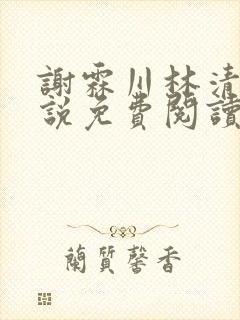 謝霖川林清
說免費閱讀
蘭質馨香